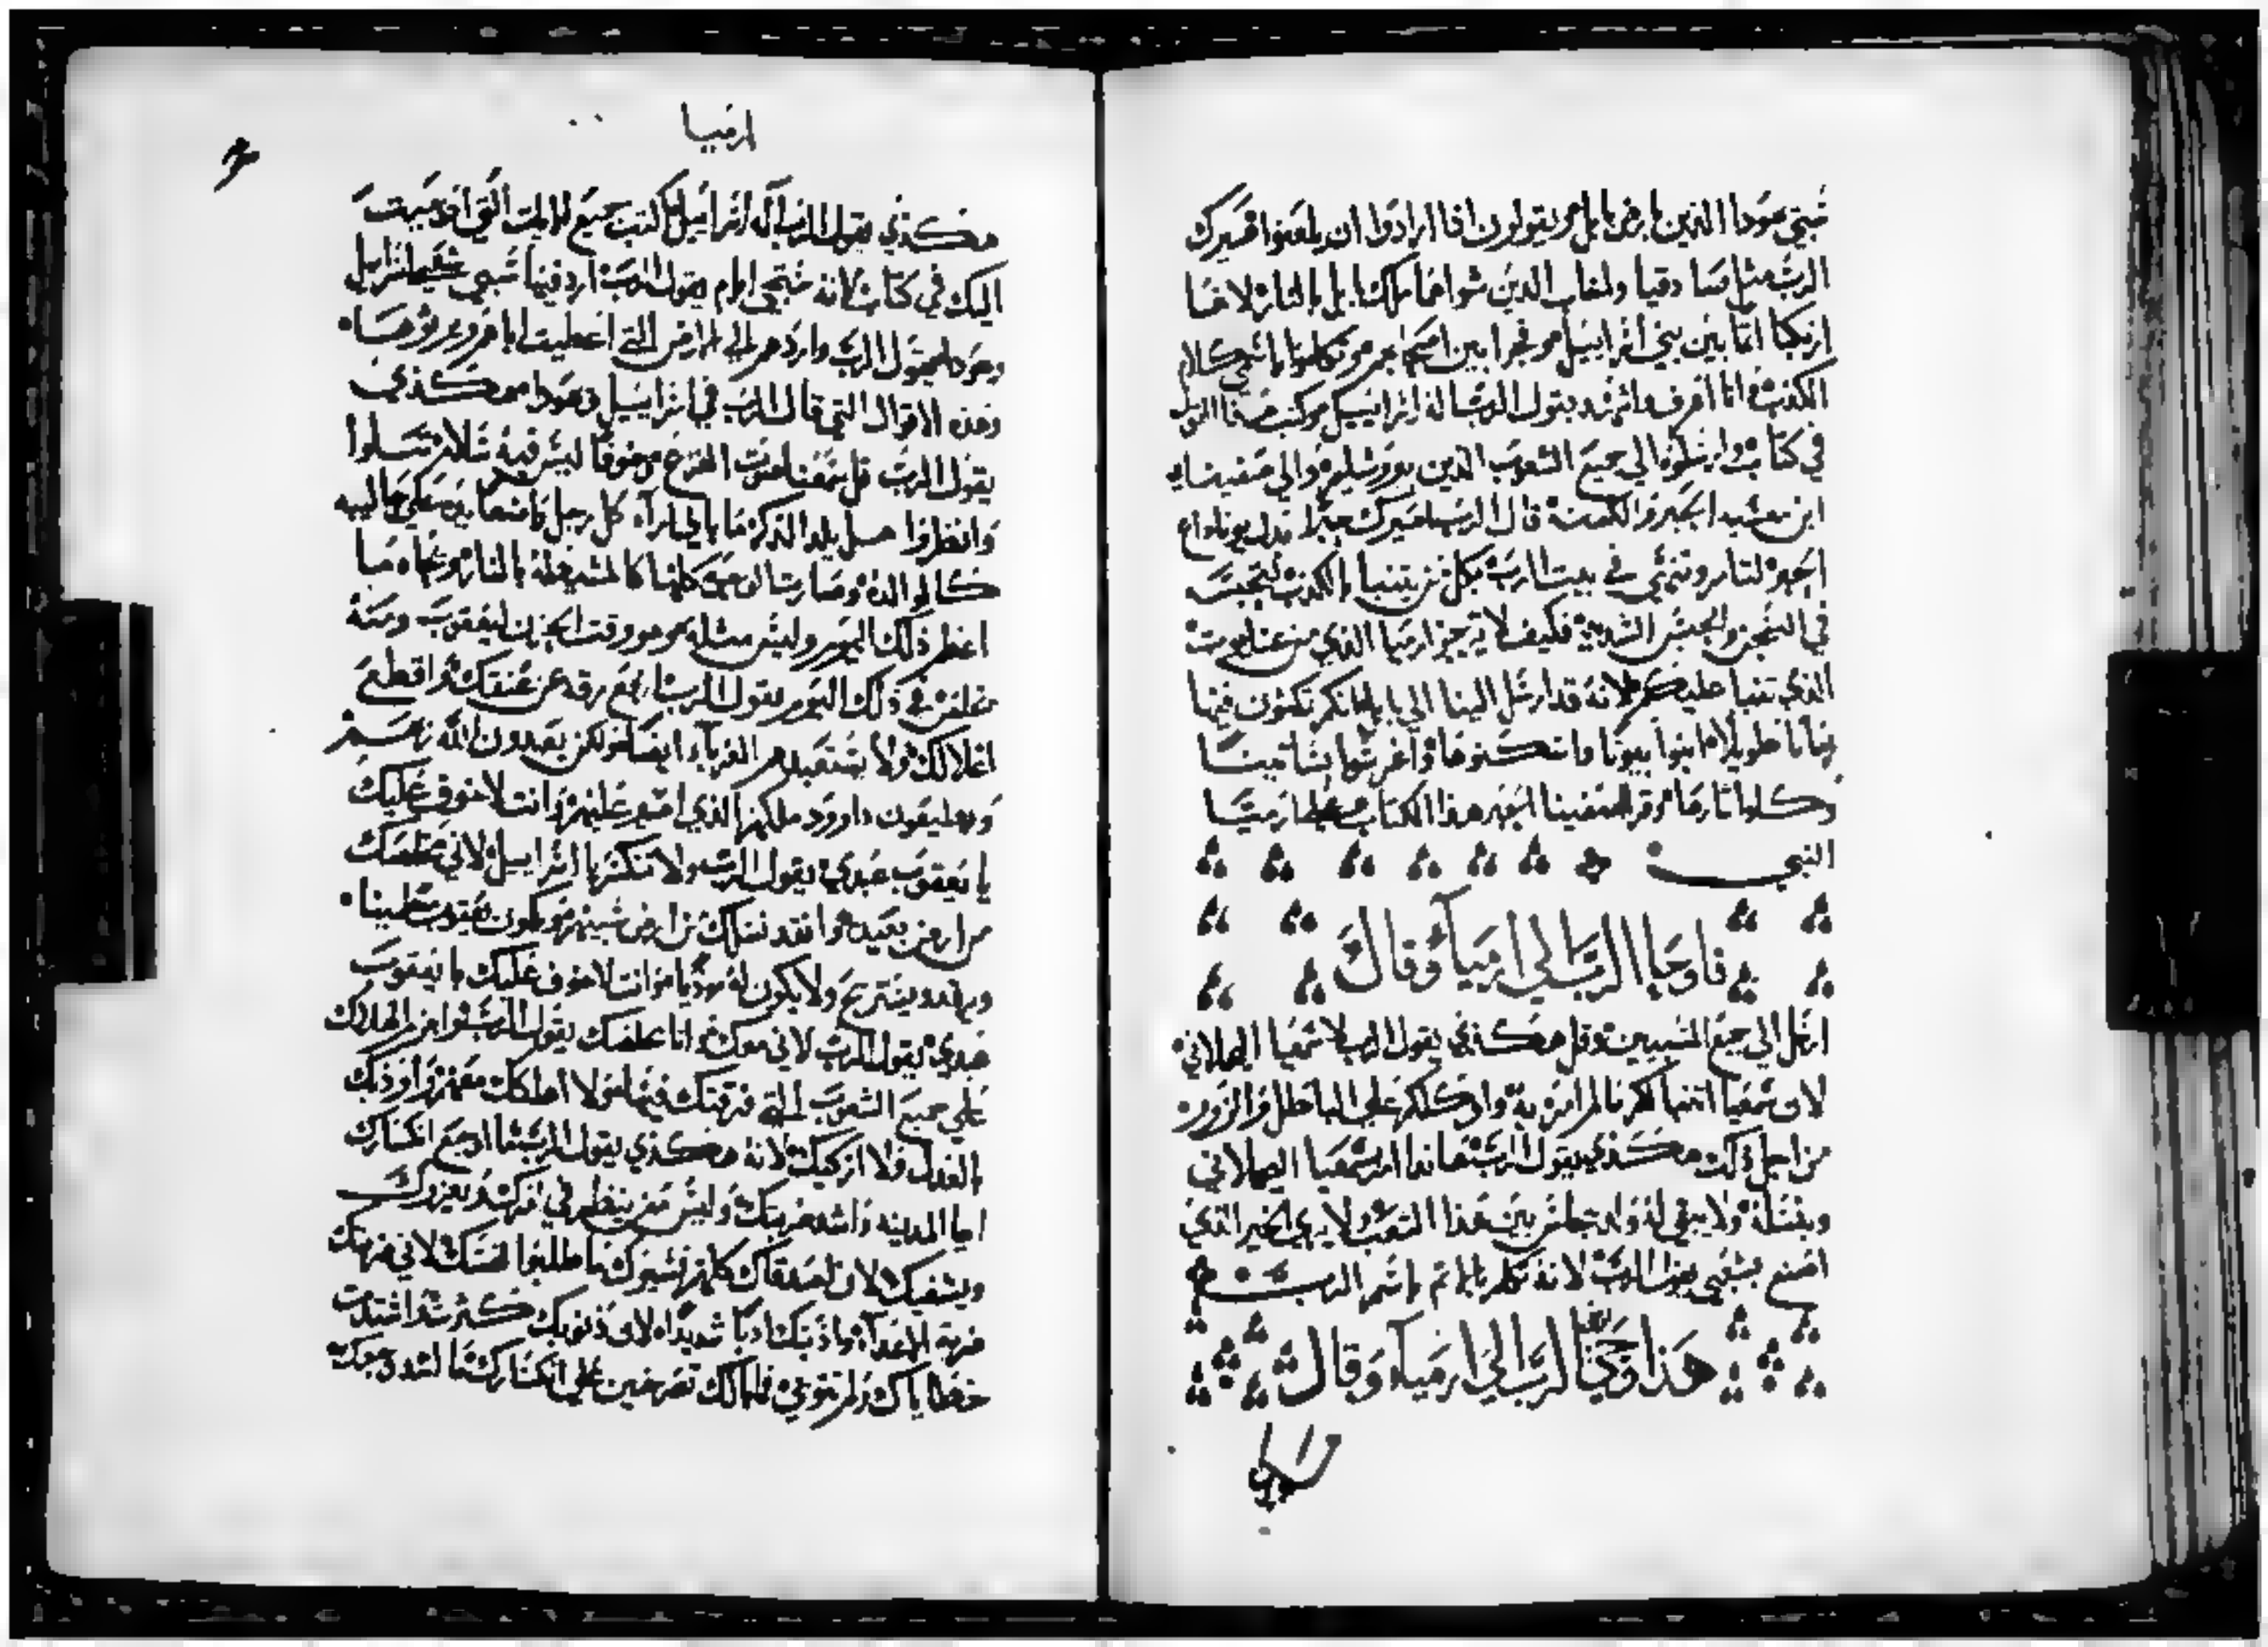 سبي يهودا الذين بارض بابل ويقولون اذا ارادوا ان يلعنوا صيرك
الرب مثل صادقيا ولخاب الذين شواهما ملك بابل بالنار لانهما
ارتكبا اثما بين بني اسراييل وفجرا بين اصحابهم وتكلموا باسمي كلام
الكذب وانا اعرف واشهد يقول الرب اله اسراييل وكتب صفنا القول
في كتاب وارسلوه الي جميع الشعوب الذين بيروشليم والي صفينا
ابن معشيا الحبر والكهنة قال الرب صيرك حبرا بدل يوناداع
الحبر لتامر وتنهي في بيت الرب بكل من يتنبا بالكذب لتحبسه
في السجن والحبس الشديد فكيف لا تزجر ارميا الذي من عناثوت
الذي تنبا عليكم لانه قد ارسل الينا الي بابل انكم تكثون فيها
زمانا طويلا ابنوا بيوتا واسكنوها واغرسوا بساتينا
وكلوا ثارها وقرا صفينا الحبر هذا الكتاب علي ارميا
النبي
فاوحا الرب الي ارمياء وقال
ارسل الي جميع المسبيين وقل هكذي يقول الرب لاشمعيا اليحلاني
لان شمعيا اتنبا لكم ما لم امر به واوكلكم علي الباطل والزور
من اجل ذلك هكذي يقول الرب هاندا امر بشمعيا اليحلاني
وبنسله ولا يبقي له ولد يجلس بين هذا الشعب لا يري الخير الذي
اصنع بشعبي يقول الرب لانه تكلم بالاثم باسم الرب
هذا وحي ايضا الرب الي ارمياء وقال
ارميا
هكذي يقول الرب اله اسراييل اكتب جميع الايات التي اوحيت
اليك في كتاب لانه ستجي ايام يقول الرب ارد فيها سبي شعبي اسراييل
ويهودا يقول الرب واردهم الي الارض التي اعطيت اباهم ويرثوها
وهذه الاقوال التي قال الرب في اسراييل ويهودا هكذي
يقول الرب قل سمعنا صوت الفزع وخوفا ليس فيه سلام سلوا
وانظروا هل يلد الذكر ما بالي اراه كل رجل واضعا يده علي حاليه
كالوالده وصارت الوجوه كلها كالمشتعلة بالنار
اعظم ذلك اليوم وليس مثله وهو وقت الحزن ليعقوب ومنه
يخلص في ذلك اليوم يقول الرب ارفع نيرة عن عنقك واقطع
اغلالك ولا يستعبدهم الغرباء ايضا ولكن يعبدون الله ربهم
ويطيعون داوود ملكهم الذي اقيم عليهم وانت لا خوف عليك
يا يعقوب عبدي يقول الرب ولا تنكسر يا اسراييل لاني مخلصك
من ارض بعيده وانقد نسلك من ارض سبيهم ويكون يعقوب مطمينا
ويهدو ويستريح ولا يكون له موذيا وانت لا خوف عليك يا يعقوب
عبدي يقول الرب لاني معك وانا مخلصك يقول الرب وانزل الهلاك
علي جميع الشعوب التي فرقتك فيها ولا اهلكك معهم واودبك
بالعدل ولا ازكيك لانه هكذي يقول الرب ما اوجع انكسارك
ايها المدينه واشد ضربتك وليس من ينظر في امرك ويعزوك
ويشفيك لان اصدقاك كلهم نسوك وما طلبوا لانى ضربتك
ضربة الاعداء وادبتك ادبا شديدا لان ذنوبك كثرت واشتدت
خطاياك فما لك تصرخين علي انكسارك ما اشد وجعك